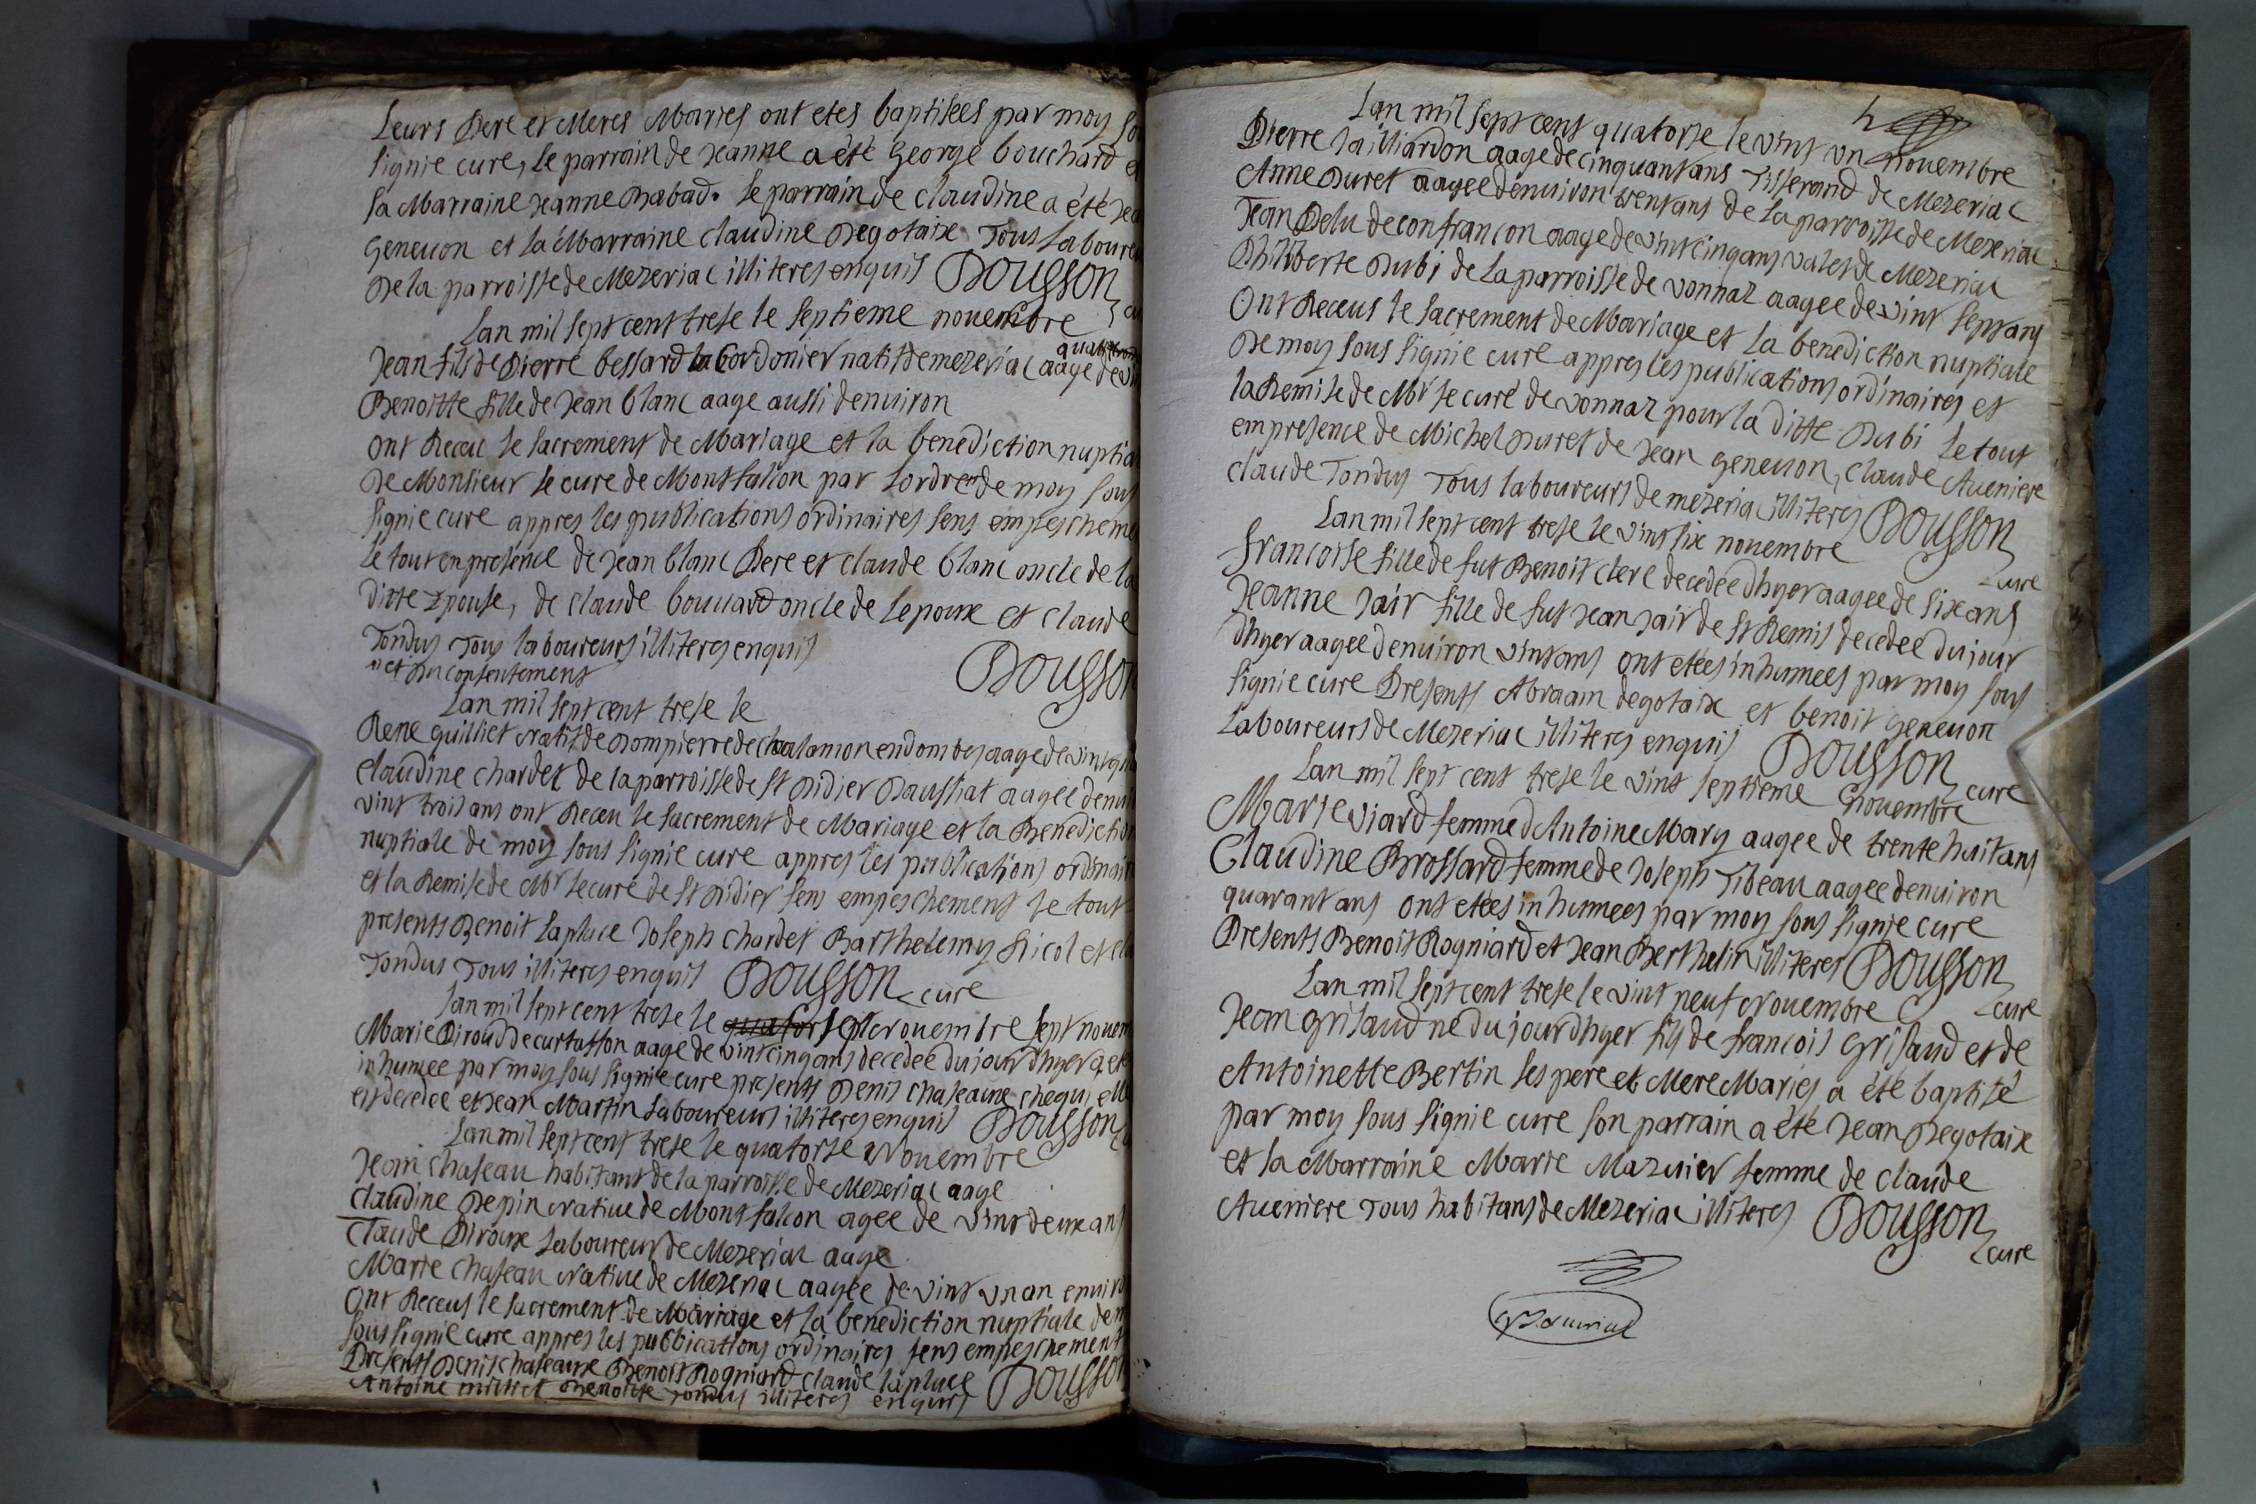 Leurs Pere et Meres Maries ont etes baptisées par moy so
signie cure, le parrain de Jeanne a été George bouchard e
la Marraine Jeanne Rabad. le parrain de claudine a été Jea
Geneuon et la Marraine claudine Degotaix Tous Laboure
De la parroisse de Mezeriac illiteres enquis Dousson
cu
Lan mil sept cent trese le septieme nouembre
quat
Jean fils de Pierre bessard Cordonier natif de mezeriac aage de vi
Benoitte fille de Jean blanc aage aussi denuiron
ont Receu le sacrement de Mariage et la benediction nuptia
De Monsieur le cure de Montfalcon par lordre de moy sous
signie cure appres les publications ordinaires sens empeschemen
le tout en presence de Jean blanc Pere et claude blanc oncle de la
ditte Epouse, de claude bouuard oncle de Lepoux et Claude
Tondus Tous laboureurs illiteres enquis
et du consentement
Dousson
Lan mil sept cent trese le
Rene guilliet natif de Dompierre de chalamon en dombes aage de vint
claudine chardet de la parroisse de St Didier Daussiat aagée denui
vint trois ans ont Receu le sacrement de Mariage et la Benediction
nuptiale de moy sous signie cure appres les publications ordinair
et la Remise de Mr le curé de St Didier sens empeschement le tout
presents Benoit Laplace Joseph chardet Barthelemy Nicol et cla
Tondus Tous illiteres enquis Dousson cure
Lan mil sept cent trese le sept nouem
Marie Piroud de curtaffon aage de vintcinq ans decedee du jour dhyer a ete
inhumee par moy sous signie cure presents Denis chaseaux cheq
est decedee et Jean Martin Laboureurs illiteres enquis Dousson
Lan mil sept cent trese le quatorse Nouembre
Jean chaseau habitant de la parroisse de Mezeriac aage
claudine Pepin natiue de Montfalcon agee de vint deux ans
Claude Piroux Laboureur de Mezeriac aage
Marie chaseau natiue de Mezeriac aagée de vint un an enuiro
Ont Receus le sacrement de Mariage et la benediction nuptiale de m
sous signie cure appres les publications ordinaires sens empeschement
Presents Denis chaseaux Benoit Rogniard claude laplace Dousson
Antoine Benoitte Tondus illiteres enquis
Lan mil sept cent quatorse le vint un nouembre
Pierre aage de cinquant ans Tisserand de Mezeriac
Anne Duret aagée denuiron trent ans de la parroisse de Mezeriac
Jean Pelu de confrancon aage de vint cinq ans valet de Mezeriac
Philiberte Dubi de la parroisse de vonnaz aagee de vint sept ans
Ont Receus le sacrement de Mariage et la benediction nuptiale
De moy sous signie cure appres les publications ordinaires et
la Remise de Mr le curé de vonnaz pour la ditte Dubi le tout
en presence de Michel Duret de Jean Geneuon, Claude Aueniere
claude Tondus Tous laboureurs de mezeriac illiteres Dousson
cure
Lan mil sept cent trese le vint six nouembre
Francoise fille de fut Benoit clere decedée dhyer aagée de six ans
Jeanne Jair fille de fut Jean Jair de St Remis decedée du jour
dhyer aagée denuiron vint ans ont etées inhumees par moy sous
signie cure Presents Abraam degotaix et benoit Geneuon
Laboureurs de Mezeriac illiteres enquis Dousson
cure
Lan mil sept cent trese le vint septieme nouembre
Marie viard femme dAntoine Mary aagee de trente huit ans
Claudine Brossard femme de Joseph Tibeau aagée denuiron
quarant ans ont etées inhumees par moy sous signie cure
Presents Benoit Rogniard et Jean Berthelin illiteres Dousson
cure
Lan mil sept cent trese le vint neuf Nouembre
Jean grisaud né du jour dhyer fils de francois Grisaud et de
Antoinette Bertin ses pere et Mere Maries a été baptisé
par moy sous signie cure son parrain a été Jean Degotaix
et la Marraine Marie Mazuier femme de claude
Aueniere Tous habitans de Mezeriac illiteres Dousson
cure